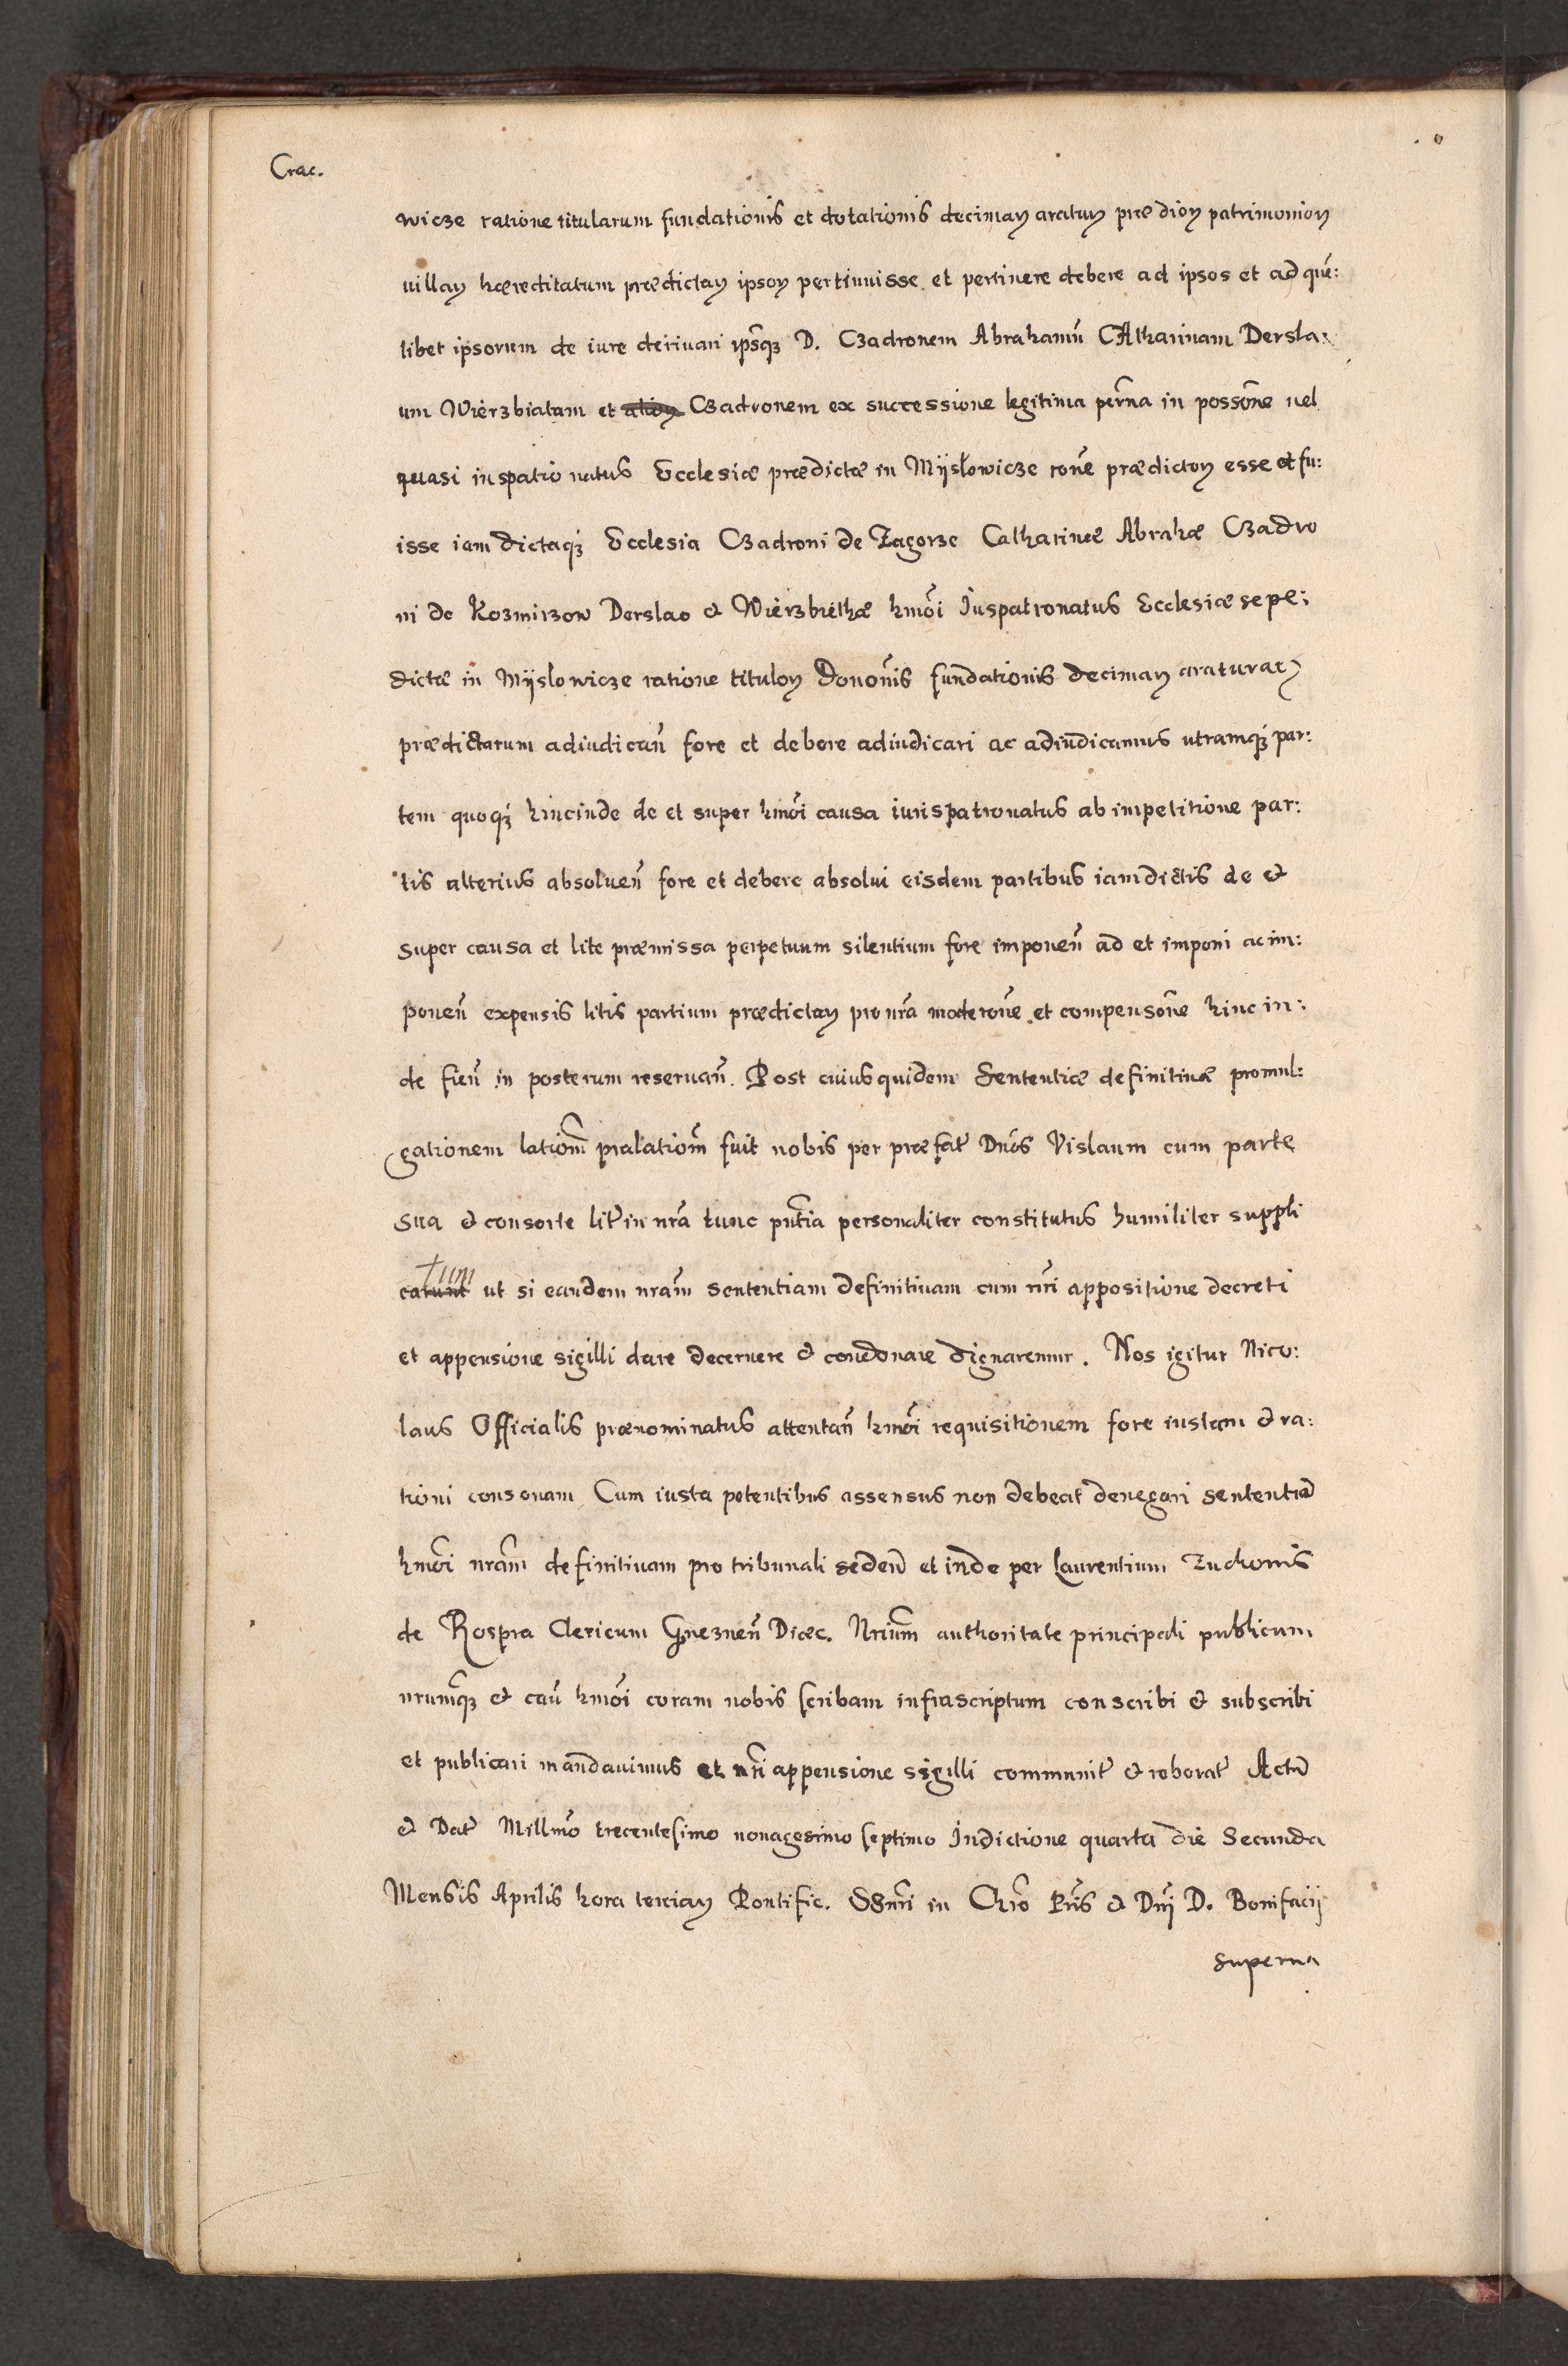 Crac.
wicze ratione titularum fundationis et dotationis decimaꝝ aratuꝝ prædioꝝ patrimonioꝝ
villaꝝ hæreditatum prædictaꝝ ipsoꝝ pertinuisse et pertinere debere ad ipsos et ad quē:
libet ipsorum de iure deriuari ipsq̃ꝫ D. Czadronem Abrahamū CAtharinam Dersla:
um Wierzbiatam et Czadronem ex successione legitima per̃na in posso͠ne uel
quasi inspatronatus Ecclesiæ prædictæ in Mÿsłowicze ro͠ne prædictoꝝ esse et fu:
isse iam dictaqꝫ Ecclesia Czadroni de Zagorze Catharinæ Abrahæ Czadro
ni de Kozmirzow Derslao & Wierzbiethæ hmo͠i Iuspatronatus Ecclesiæ sepe:
dictæ in Mÿslowicze ratione tituloꝝ Donono͠is fundationis decimaꝝ araturaꝝ
prædictarum adiudican͠ fore et debere adiudicari ac adiudicamus utramqꝫ par:
tem quoqꝫ hincinde de et super hmo͠i causa iurispatronatus ab impetitione par:
tis alterius absoluen͠ fore et debere absolui eisdem partibus iamdictis de &
super causa et lite præmissa perpetuum silentium fore imponen͠ ad et imponi ac im:
ponen͠ expensis litis partium prædictaꝝ pro nr͠a modero͠ne et compenso͠ne hinc in:
de fien͠ in posterum reseruan͠. Post cuius quidem Sententiæ definitiuæ promul:
gationem latio͠m prælatio͠m fuit nobis per præfat͠ Dn͠os Vislaum cum parte
sua & consorte lit͠ in nr͠a tunc pn͠tia personaliter constitutus humiliter suppli
catum ut si eandem nr͠am sententiam definitiuam cum nr͠i appositione decreti
et appensione sigilli dare decernere & condonare dignaremur. Nos igitur Nico:
laus Officialis prænominatus attentan͠ hmo͠i requisitionem fore iustam & ra:
tioni consonam Cum iusta petentibus assensus non debeat denegari sententia͠
hmo͠i nr͠am definitiuam pro tribunali seden͠ et inde per Laurentium Zuchonis
de Rospra Clericum Gneznen͠ Diæc. Nriu͠m authoritate principali publicum
nrumq̃ꝫ & cau͠ hmo͠i coram nobis scribam infrascriptum conscribi & subscribi
et publicari mandauimus et nr͠i appensione sigilli communit͠ & roborat͠ Actu͠
& Dat͠ Millmo͠ trecentesimo nonagesimo septimo Indictione quarta die Secunda
Mensis Aprilis hora terciaꝝ Pontific. SSmi͠ in Chro͠ Pr͠is & Dn͠j D. Bonifacij
superna